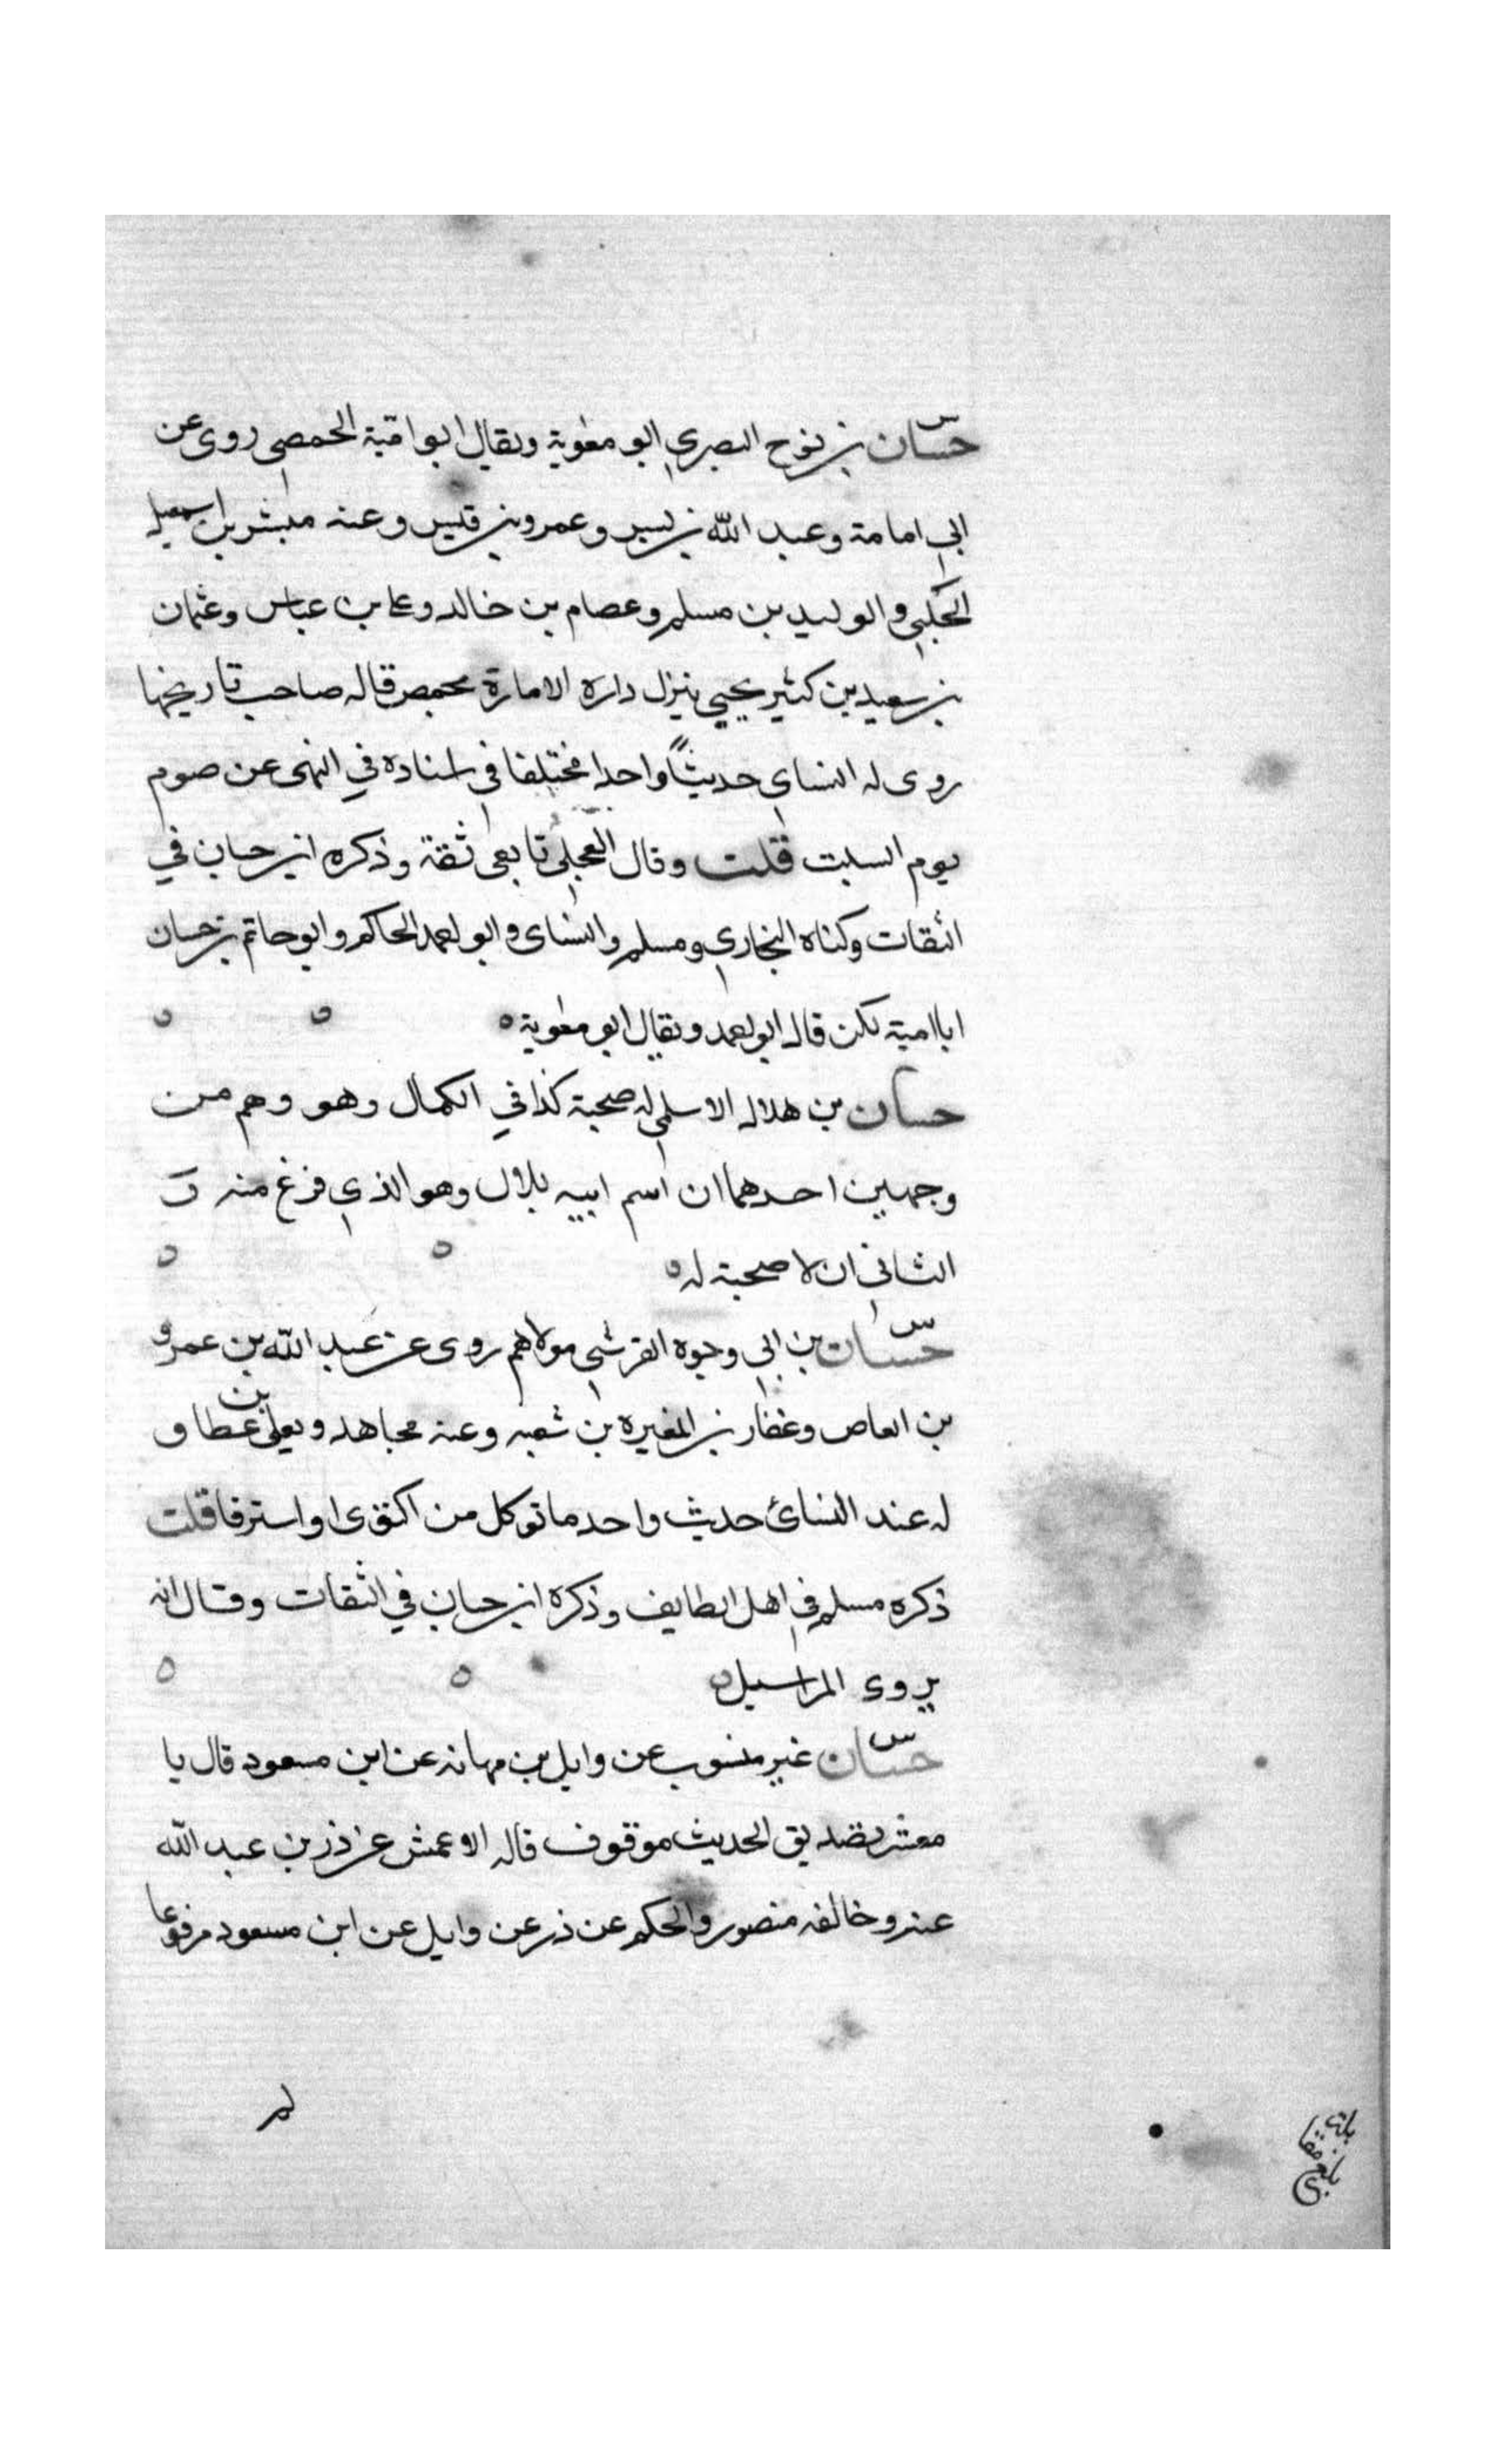 س
حسان بن نوح البصري ابو معوية ويقال ابو امية الحمصي روى عن
ابي امامة وعبد الله بن بسر وعمرو بن قيس وعنه مبشر بن اسمعيل
الحلبي والوليد بن مسلم وعصام بن خالد وعلي بن عباس وعثمان
بن سعيد بن كثير يحيى ينزل داره الامارة بحمص قاله صاحب تاريخها
روى له النساى حديثًا واحدا مختلفا في اسناده في النهى عن صوم
يوم السبت قلت وقال العجلى تابعى ثقة وذكره ابن حبان في
الثقات وكناه البخاري ومسلم والنساى وابو احمد الحاكم وابو حاتم بن حبان
ابا امية لكن قال ابو احمد ويقال ابو معوية ه ه ه
حسان بن هلال الاسلمى له صحبة كذا في الكمال وهو وهم من
وجهين احدهما ان اسم ابيه بلال وهو الذي فرغ منه و
الثاني ان لا صحبة له ه ه ه
س
حسان بن ابي وجوه القرشي مولاهم روى عن عبد الله بن عمرو
بن العاص وعقار بن المغيره بن شعبه وعنه مجاهد ويعلى بن عطا و
له عند النسائ حديث واحد ما توكل من اكتوى او استرقا قلت
ذكره مسلم في اهل الطايف وذكره ابن حبان في الثقات وقال انه
يروى المراسيل ه ه ه
س
حسان غير منسوب عن وايل بن مهانه عن ابن مسعود قال يا
معشر تصديق الحديث موقوف قاله الاعمش عن ذر بن عبد الله
عنه وخالفه منصور والحكم عن ذر عن وايل عن ابن مسعود مرفوعا
لم
بلغ مقابلة